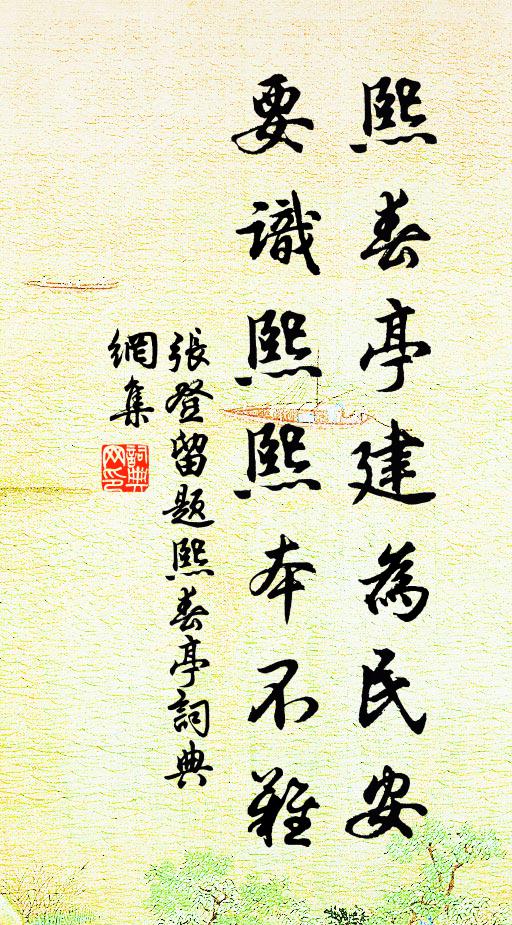 熙春亭建為民安
要識熙熙本不難
張登留題熙春亭詞典
網集
詞典
网印